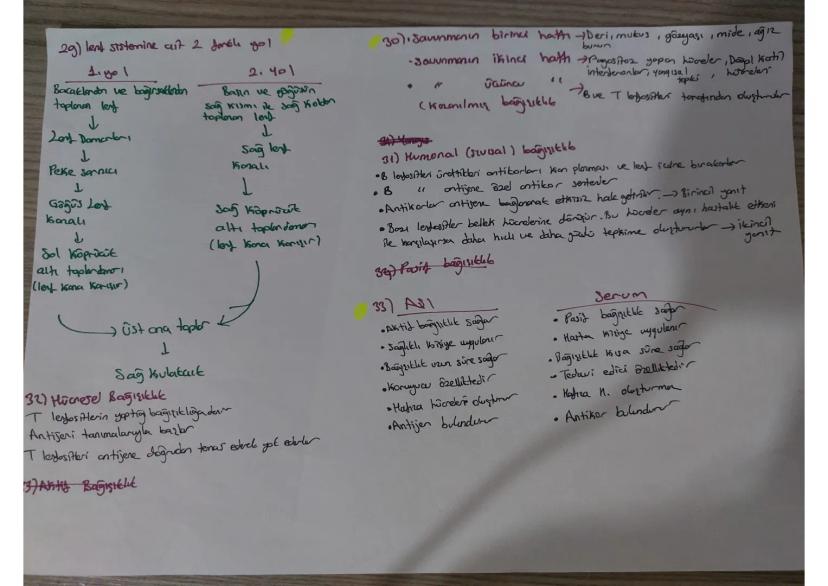 29) lenf sistemine ait 2 önemli yol
1. yol
Bacaklardan ve bağırsaklardan
toplanan lenf
↓
Lenf Damarları
↓
Peke sarnıcı
↓
Göğüs Lenf
kanalı
↓
Sol Köprücük
altı toplardamarı
(lenf kana karışır)
2. yol
Başın ve göğüsün
sağ kısmı ile sağ koldan
toplanan lenf
↓
Sağ lenf
kanalı
↓
Sağ Köprücük
altı toplardamarı
(lenf kana karışır)
üst ana toplar
↓
Sağ kulakcık
32) Hücresel Bağışıklık
T lenfositlerin yaptığı bağışıklığa denir
Antijeni tanımalarıyla başlar
T lenfositleri antijene doğrudan temas ederek yok ederler
Aktif Bağışıklık
30) • Savunmanın birinci hattı → Deri, mukus, gözyaşı, mide, ağız
burun
- Savunmanın ikinci hattı → Fagositoz yapan hücreler, Doğal Katil
interferonlar, yangısal tepki, hücreleri
• " üçüncü "
(Kazanılmış bağışıklık → B ve T lenfositleri tarafından oluşturulur
31) Humoral (sıvısal) bağışıklık
• B lenfositleri ürettikleri antikorları kan plazması ve lenf içine bırakırlar
• B " antijene özel antikor sentezler
• Antikorlar antijene bağlanarak etkisiz hale getirir. → Birincil yanıt
• Bazı lenfositler bellek hücrelerine dönüşür. Bu hücreler aynı hastalık etkeni
ile karşılaşırsa daha hızlı ve daha güçlü tepkime oluştururlar → ikincil
yanıt
Pasif bağışıklık
33) Aşı
• Aktif bağışıklık sağlar
• Sağlıklı kişiye uygulanır
• Bağışıklık uzun süre sağlar
• Koruyucu özelliktedir
• Hafıza hücreleri oluşturur
• Antijen bulundurur
Serum
• Pasif bağışıklık sağlar
• Hasta kişiye uygulanır
• Bağışıklık kısa süre sağlar
• Tedavi edici özelliktedir
• Hafıza H. oluşturmaz
• Antikor bulundurur